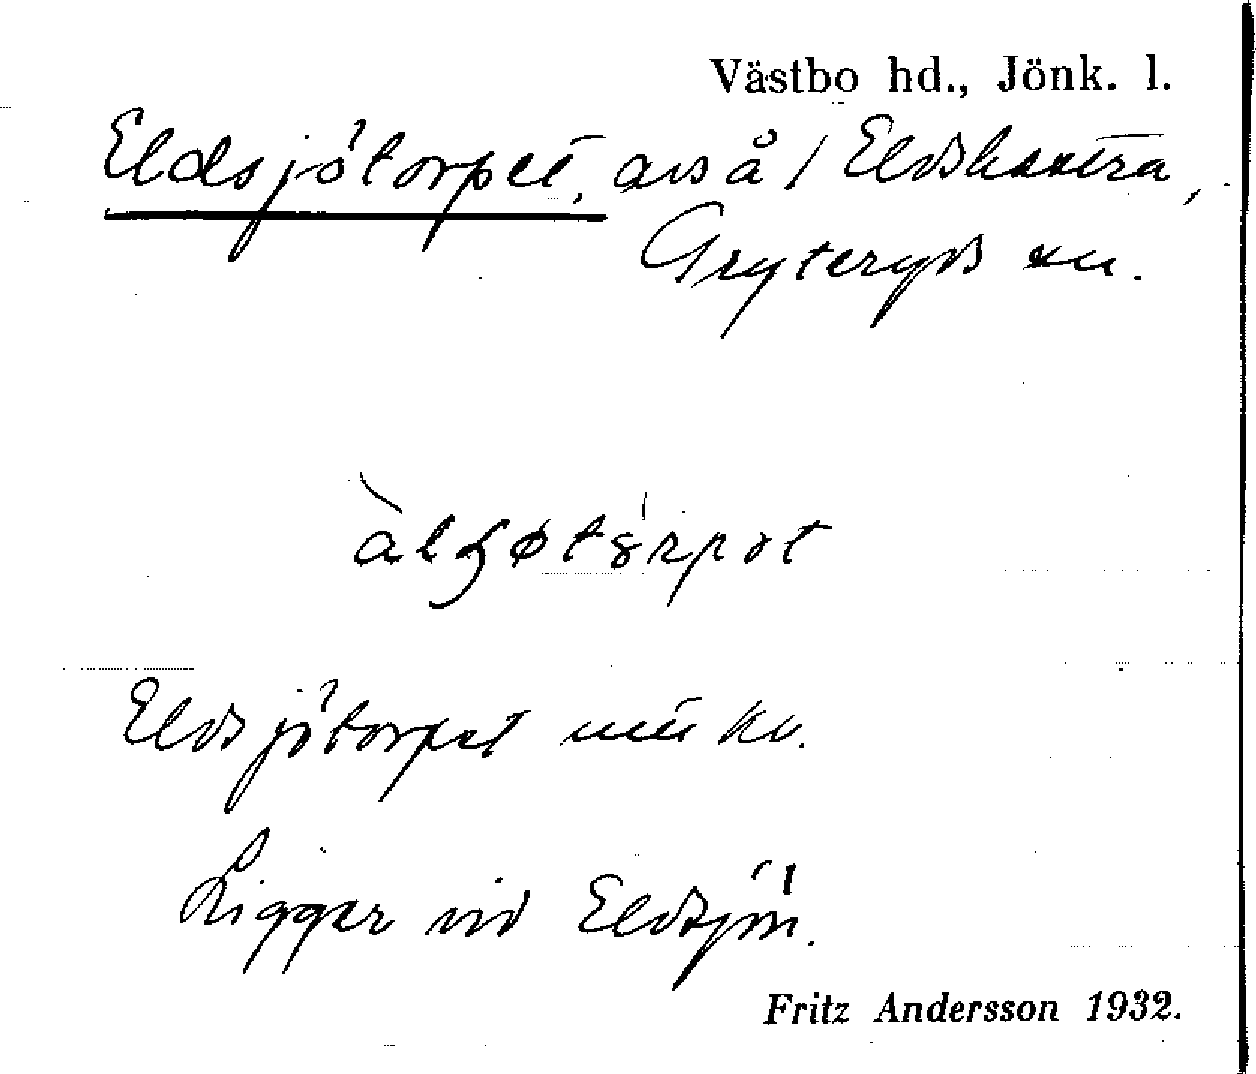 Västbo hd., Jönk. l.
Eldsjötorpet, avs å / Eldshestra,
Gryteryds sn.
Eldsjötorpet mtl kv.
Ligger vid Eldsjön.
Fritz Andersson 1932.